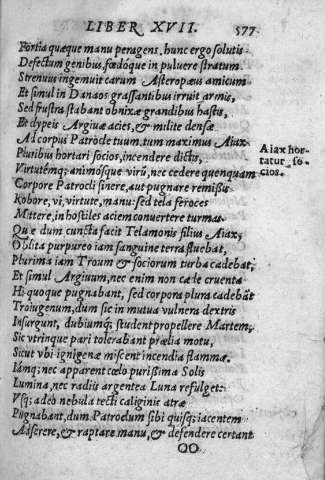 LIBER XVII. 577
Fortia quæque manu peragens, hunc ergo solutis
Defectum genibus, fœdóque in puluere stratum
Strenuus ingemuit carum Asteropæus amicum
Et simul in Danaos grassantibus irruit armis,
Sed frustra, stabant obnixæ grandibus hastis,
Et clypeis Argiuæ acies, & milite densæ
Ad corpus Patrocle tuum, tum maximus Aiax
Pluribus hortari socios, incendere dictis,
Aiax hor-
tatur so-
cios.
Virtutémq; animosque virû, nec cedere quenquam
Corpore Patrocli sinere, aut pugnare remißis
Robore, vi, virtute, manu: sed tela feroces
Mittere, in hostiles aciem conuertere turmas.
Quæ dum cuncta facit Telamonis filius Aiax,
Oblita purpureo iam sanguine terra fluebat,
Plurima iam Troum & sociorum turba cadebat,
Et simul Argiuum, nec enim non cæde cruenta
Hi quoque pugnabant, sed corpora plura cadebāt
Troiugenum, dum sic in mutua vulnera dextris
Insurgunt, dubiumq; student propellere Martem,
Sic vtrinque pari tolerabant prælia motu,
Sicut vbi ignigenæ miscent incendia flammæ.
Iámq; nec apparent cœlo purißima Solis
Lumina, nec radiis argentea Luna refulget:
Vsq; adeo nebula tecti caliginis atræ
Pugnabant, dum Patroclum sibi quisq; iacentem
Asserere, & raptare manu, & defendere certant
OO